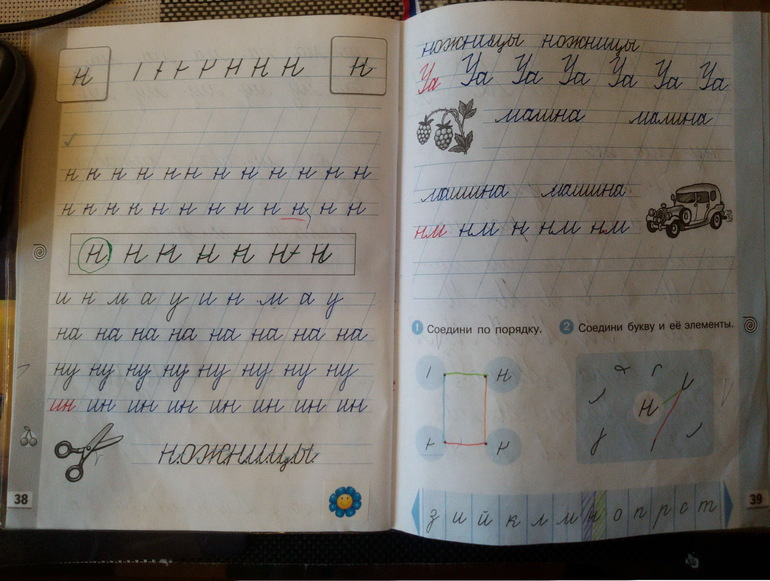 н н н н н н
н н н н н н н н н н н н
н н н н н н н н н н н н
н н н н н н н
и н м а у и н м а у
на на на на на на на на
ну ну ну ну ну ну ну ну
ин ин ин ин ин ин ин ин
ножницы
38
ножницы ножницы
Уа Уа Уа Уа Уа Уа Уа
малина малина
машина машина
нм нм н нм нм
1 Соедини по порядку. 2 Соедини букву и её элементы.
н
н
з и й к л м н о п р с т
39